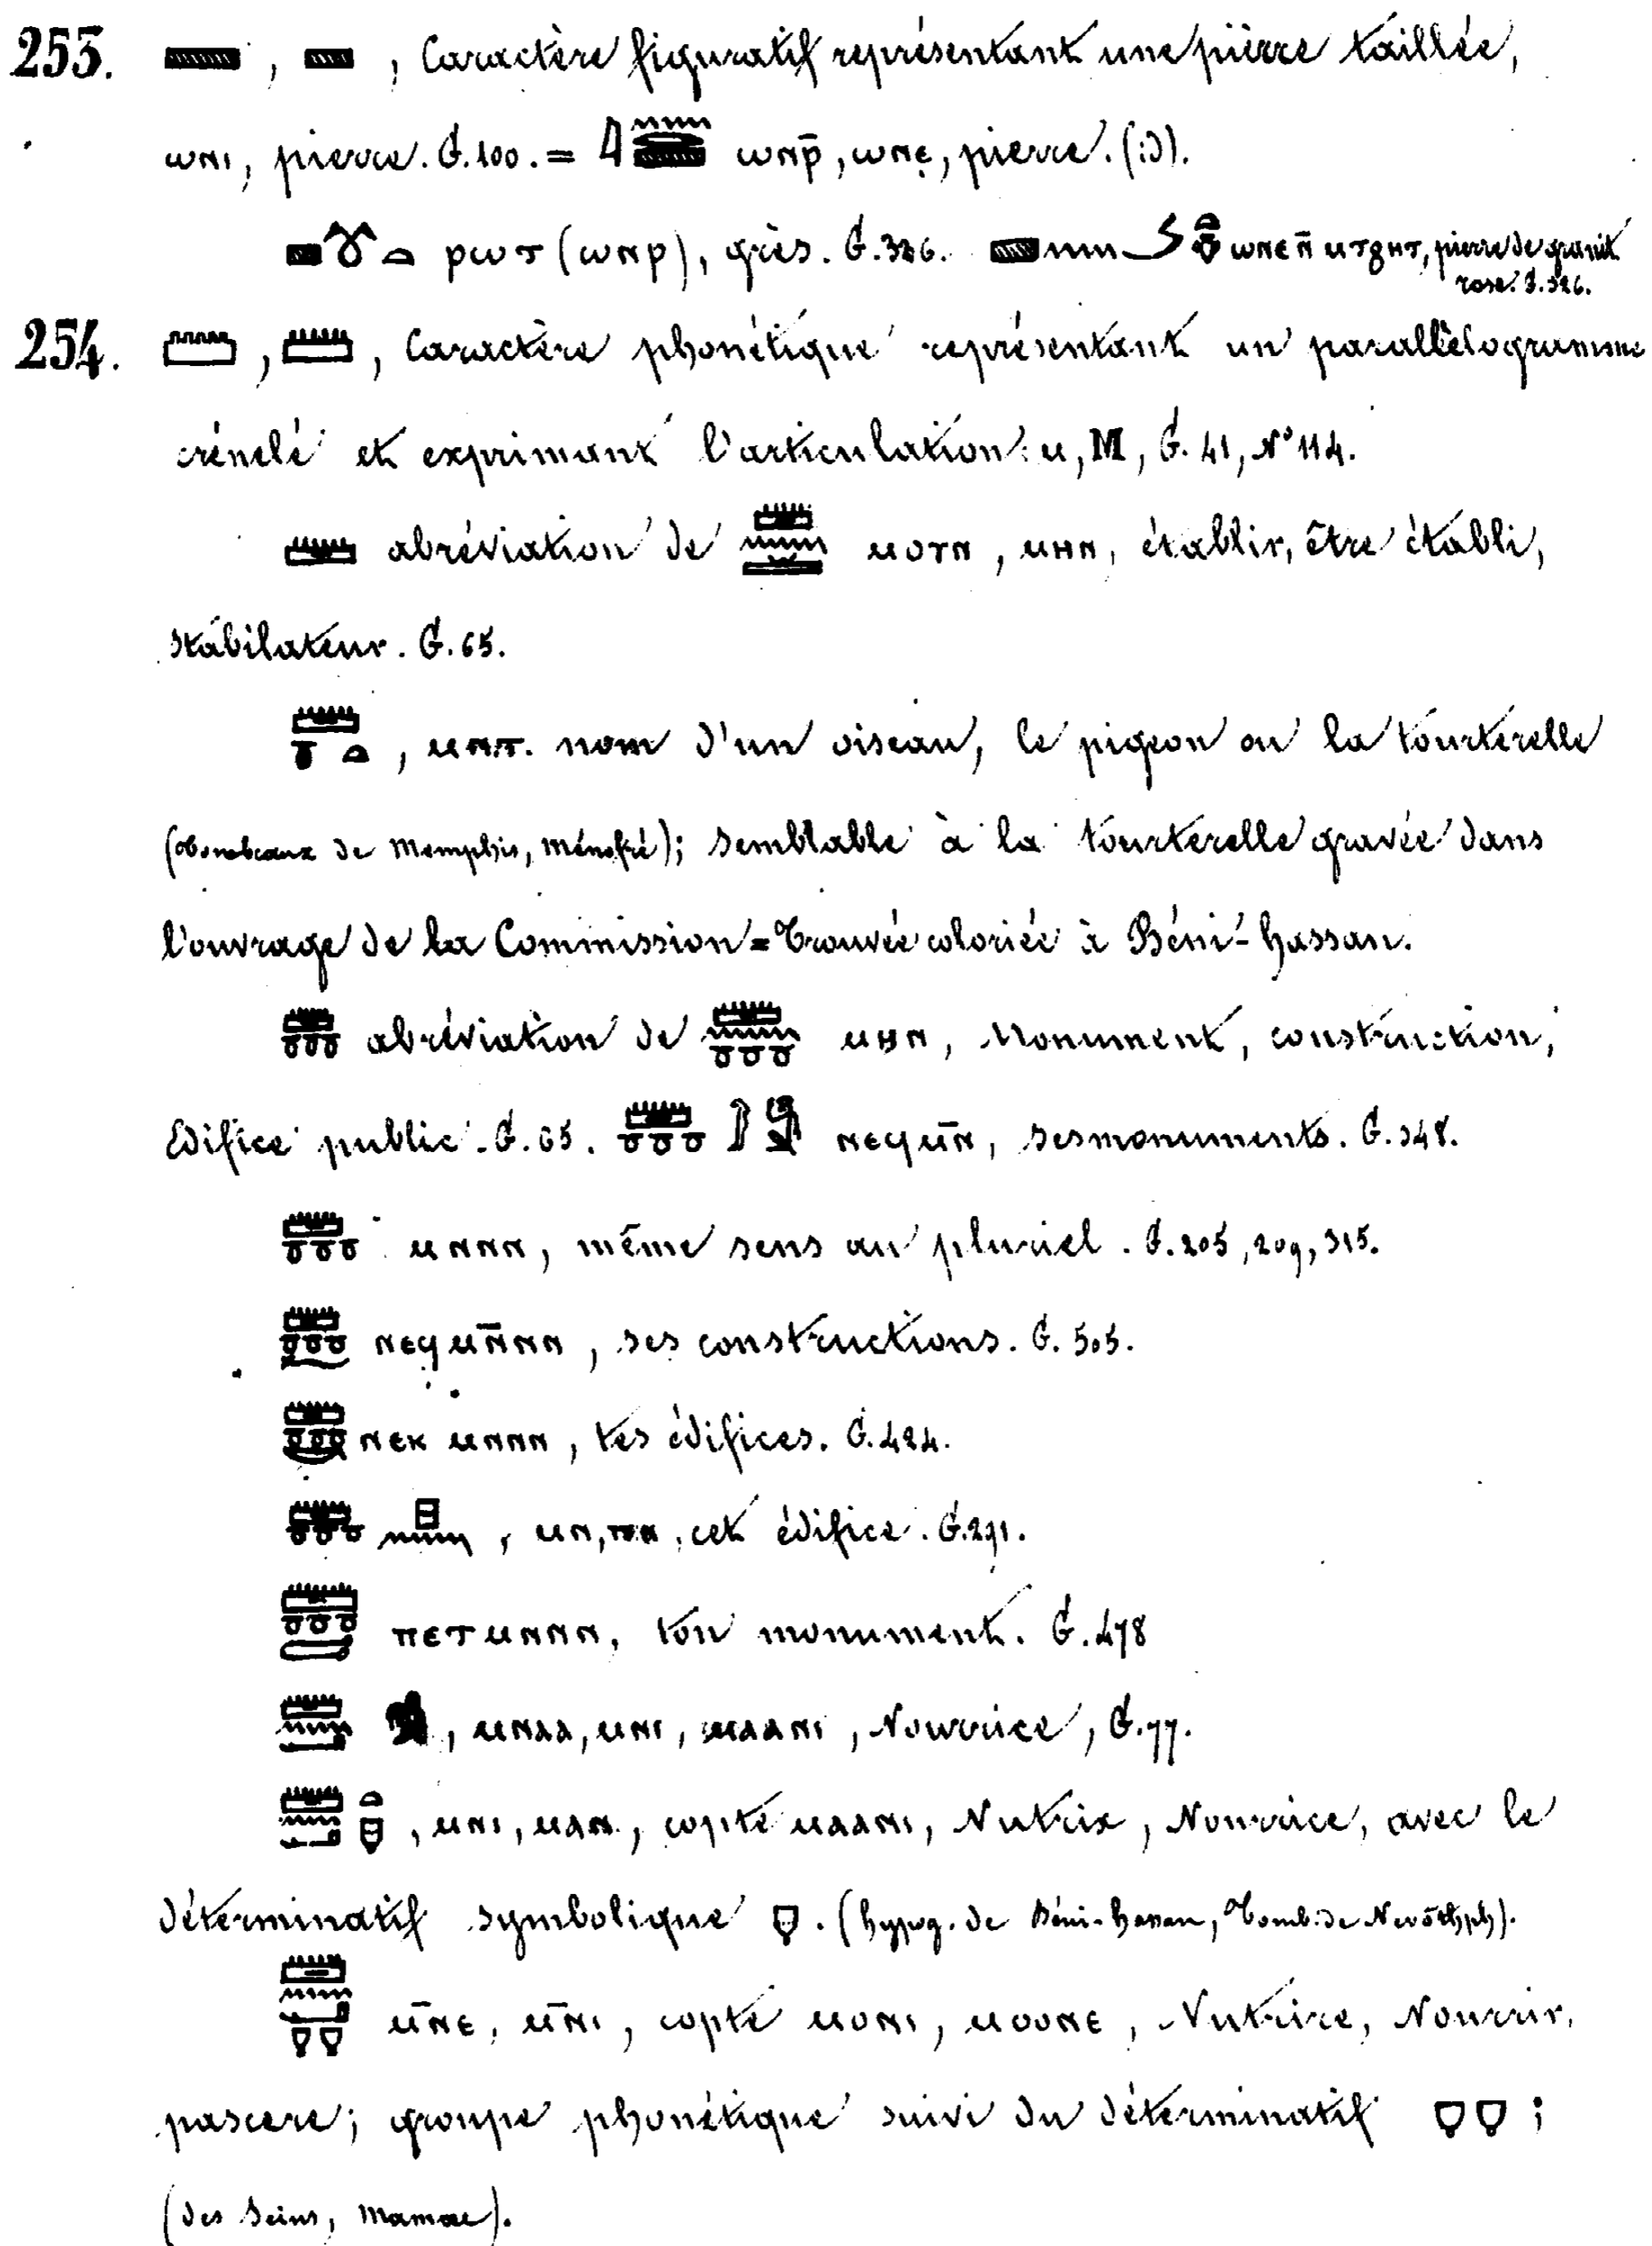 253. 𓈇, 𓈇, Caractère figuratif représentant une pierre taillée,
ⲱⲛⲓ, pierre. G. 100. = ⲱⲛⲣ̄, ⲱⲛⲉ, pierre. (id).
ⲣⲱⲧ (ⲱⲛⲣ), grès. G. 326. ⲱⲛⲉ ⲛ̄ ⲙⲧϩⲏⲧ, pierre de granit
rose. G. 326.
254. 𓏠, 𓏠, Caractère phonétique représentant un parallèlogramme
crénelé et exprimant l'articulation: ⲙ, M, G. 41, N° 114.
𓏠 abréviation de 𓏠𓈖 ⲙⲟⲩⲛ, ⲙⲏⲛ, établir, être établi,
stabilateur. G. 65.
𓏠𓏌𓏏, ⲙⲛⲧ. nom d'un oiseau, le pigeon ou la tourterelle
(de Memphis, ); semblable à la tourterelle gravée dans
l'ouvrage de la Commission = Trouvée coloriée à Béni-hassan.
𓏠𓏌𓏌𓏌 abréviation de 𓏠𓈖𓏌𓏌𓏌 ⲙⲏⲛ, Monument, construction,
Edifice public. G. 65. 𓏠𓏌𓏌𓏌 ⲛⲉϥⲙⲛ̄, ses monuments. G. 348.
𓏠𓏌𓏌𓏌 ⲙⲛⲛⲛ, même sens au pluriel. G. 205, 209, 315.
𓏠𓏌𓏌𓏌𓆑 ⲛⲉϥⲙⲛ̄ⲛⲛ, ses constructions. G. 505.
𓏠𓏌𓏌𓏌𓎡 ⲛⲉⲕ ⲙⲛⲛⲛ, tes édifices. G. 424.
𓏠𓏌𓏌𓏌 𓊪𓈖, ⲙⲛ, ⲡⲛ, cet édifice. G. 291.
𓏠𓏌𓏌𓏌𓍿 ⲡⲉⲧⲙⲛⲛⲛ, ton monument. G. 478
𓏠𓈖𓂝, ⲙⲛⲁⲁ, ⲙⲛⲓ, ⲙⲁⲁⲛⲓ, Nourrice, G. 77.
𓏠𓈖𓂝𓏏𓂑, ⲙⲛⲓ, ⲙⲁⲛ, copte ⲙⲁⲁⲛⲓ, Nutrix, Nourrice, avec le
déterminatif symbolique 𓂑. (hypog. de Béni-hassan, Tomb. de Nevôthph).
𓏠𓈖𓂝𓂑𓂑 ⲙ̄ⲛⲉ, ⲙ̄ⲛⲓ, copte ⲙⲟⲛⲓ, ⲙⲟⲟⲛⲉ, Nutrire, Nourrir,
pascere; groupe phonétique suivi du déterminatif 𓂑𓂑;
(des Seins, Mamae).